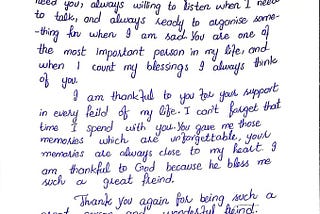 need you, always willing to listen when I need
to talk, and always ready to argonise some-
-thing fun when I am sad. You are one of
the most important person in my life, and
when I count my blessings I always think
of you.
I am thankful to you for your support
in every feild of my life. I can't forget that
time I spend with you. You gave me those
memories which are unforgettable, your
memories are always close to my heart. I
am thankful to God because he bless me
such a great freind.
Thank you again for being such a
great wonderful freind.